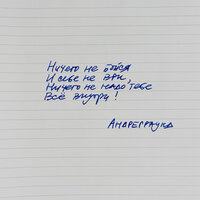 Ничего не бойся
И себе не ври,
Ничего не надо тебе
Всё внутри!
Андеграунд